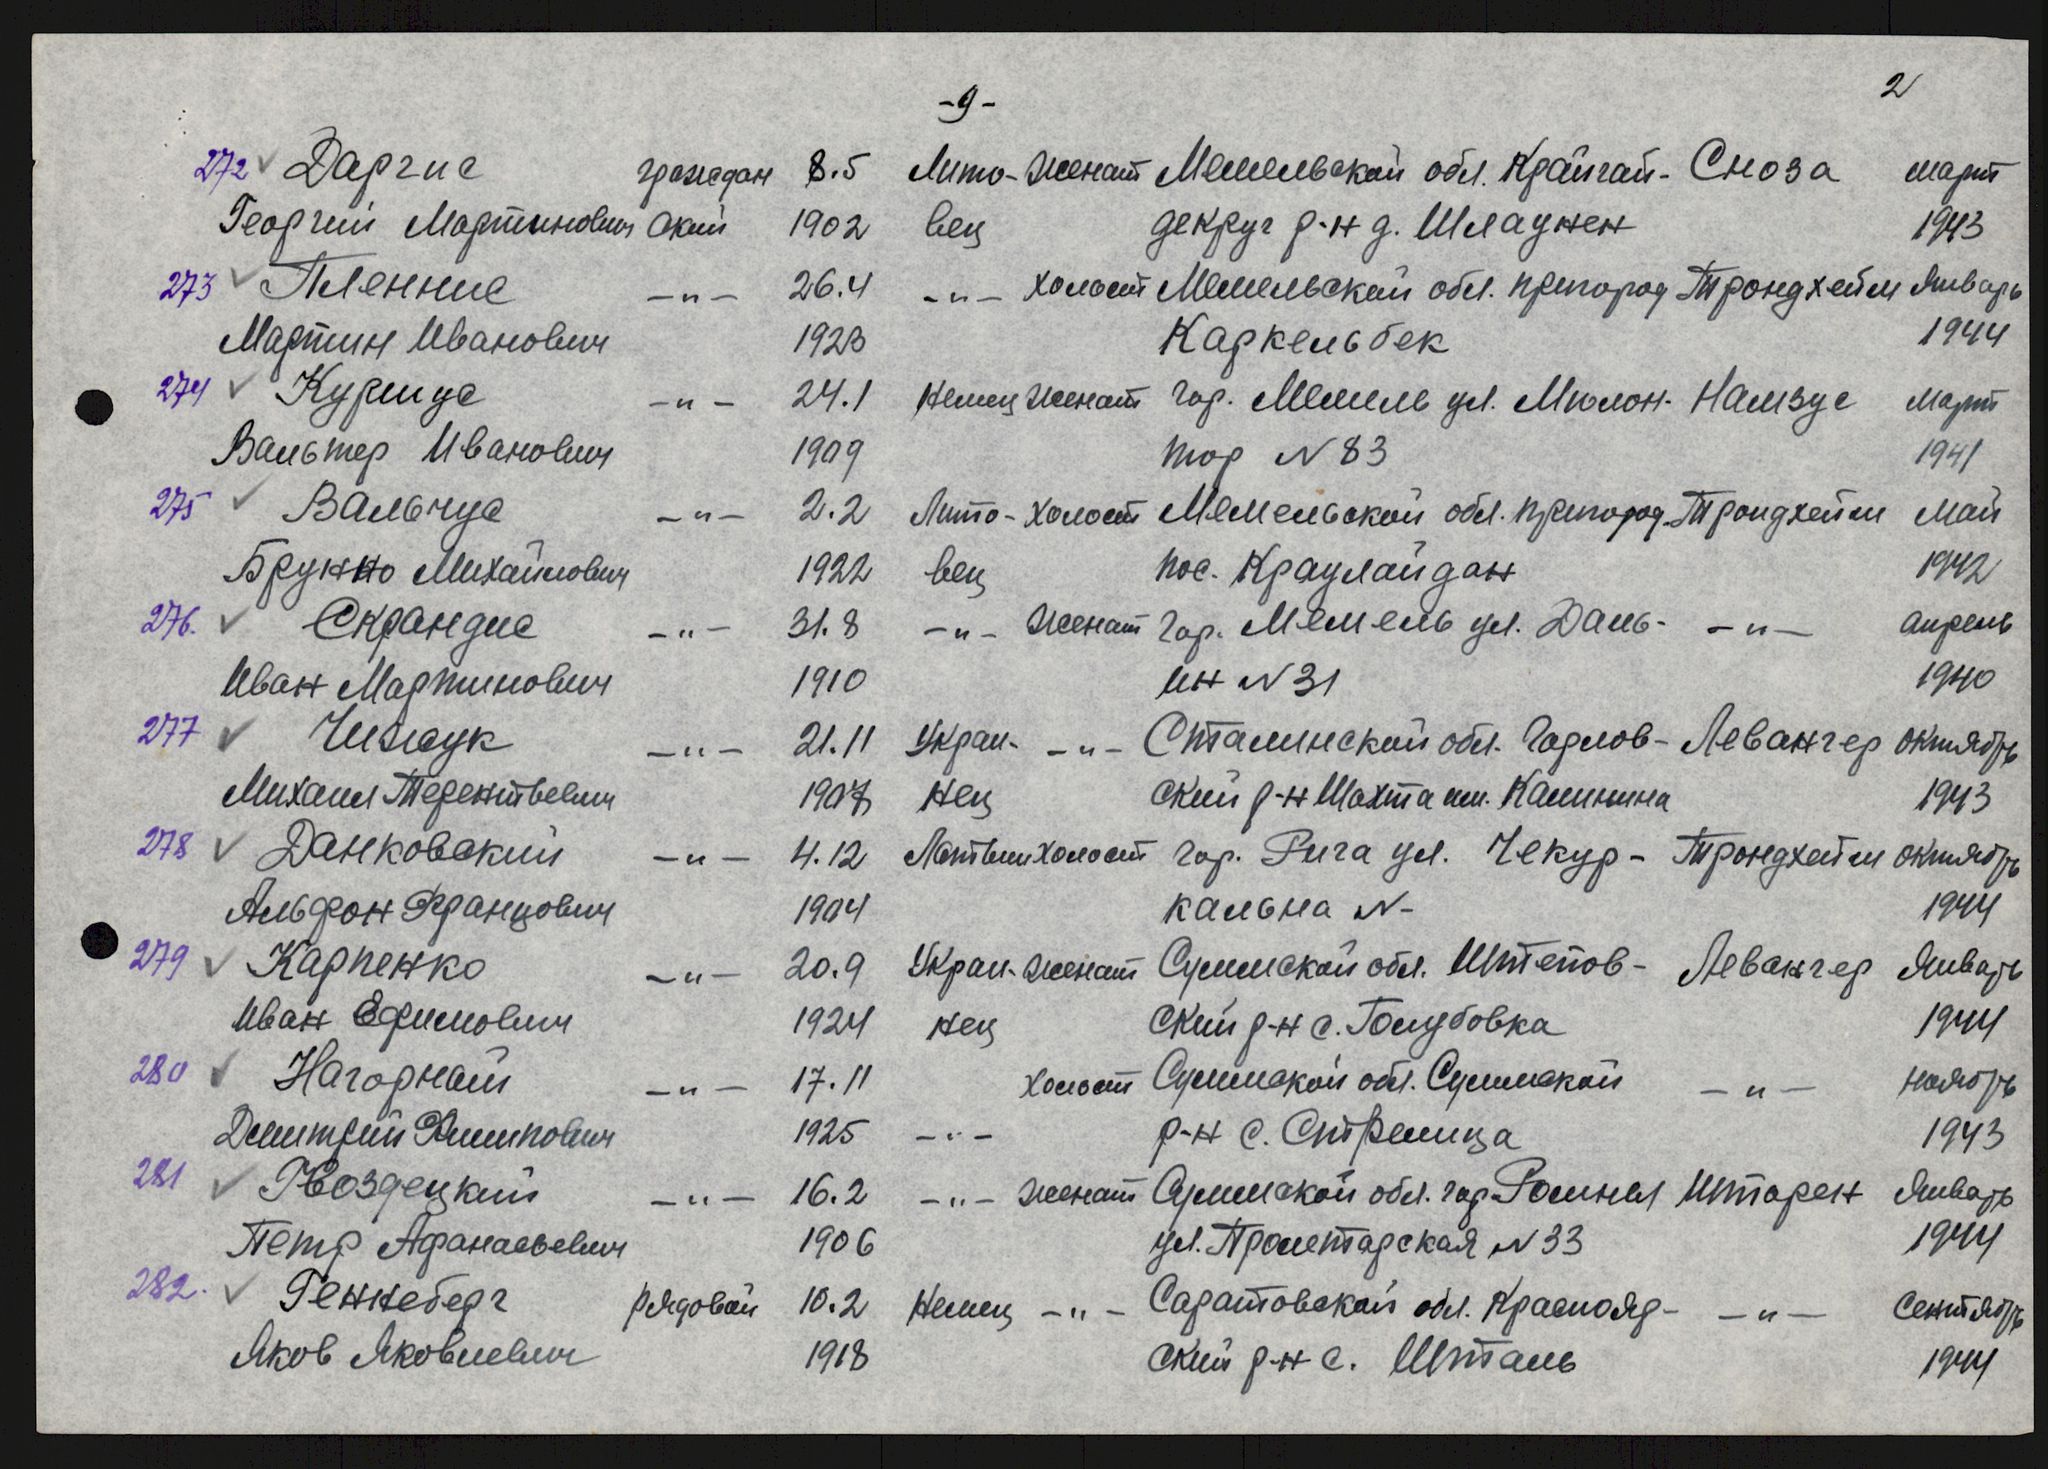 -9-
2
272 Даргис граждан 8.5 Лито- женат Мемельской обл. Крайгай- Сноза март
Георгий Мартинович ский 1902 вец декруг р-н д. Шлаунен 1943
273 Пленнис —"— 26.4 —"— холост Мемельской обл. пригород Трондхейм Январь
Мартин Иванович 1923 Каркельбек 1944
274 Куршус —"— 24.1 Немец женат гор. Мемель ул. Мюлон- Намзус март
Вальтер Иванович 1909 тор N 83 1941
275 Вальчус —"— 2.2 Лито- холост Мемельской обл. пригород Трондхейм Май
Брунно Михайлович 1922 вец пос. Краулайдан 1942
276. Скрандис —"— 31.8 —"— женат гор. Мемель ул. Даль- —"— апрель
Иван Мартинович 1910 ин N 31 1940
277 Чижук —"— 21.11 Украи- —"— Сталинской обл. Горлов- Левангер октябрь
Михаил Терентьевич 1907 нец ский р-н Шахта им. Калинина 1943
278 Данковский —"— 4.12 Латыш холост гор. Рига ул. Чекур- Трондхейм октябрь
Альфон Францович 1904 кальна N- 1944
279 Карпенко —"— 20.9 Украи- женат Сумской обл. Штепов- Левангер Январь
Иван Ефимович 1924 нец ский р-н с. Голубовка 1944
280 Нагорный —"— 17.11 холост Сумской обл. Сумской —"— ноябрь
Дмитрий Филипович 1925 —"— р-н с. Стрелица 1943
281 Гвоздецкий —"— 16.2 —"— женат Сумской обл. гор. Ромны Шторен Январь
Петр Афанасьевич 1906 ул. Пролетарская N 33 1944
282. Геннеберг рядовой 10.2 Немец —"— Саратовской обл. Краснояр- —"— сентябрь
Яков Яковлевич 1918 ский р-н с. Шталь 1944